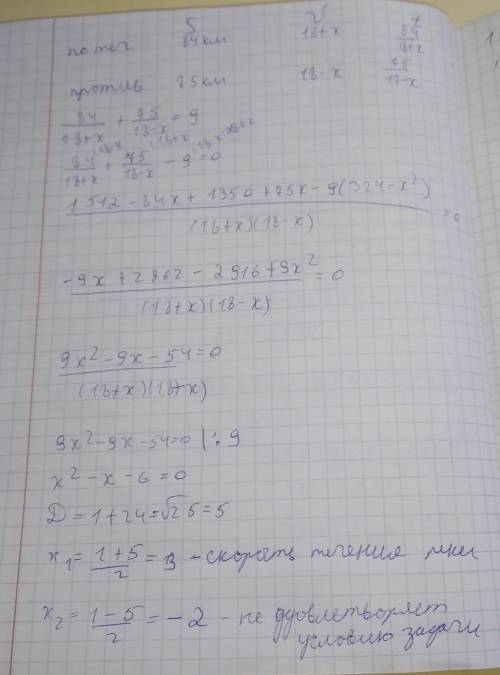 S v t
по теч 84км 18+x 84/18+x
против 75км 18-x 75/18-x
84/18+x + 75/18-x = 9
84/18+x + 75/18-x - 9 = 0
1512 - 84x + 1350 + 75x - 9(324 - x²)/(18+x)(18-x) = 0
-9x + 2862 - 2916 + 9x²/(18+x)(18-x) = 0
9x² - 9x - 54 = 0/(18+x)(18+x)
9x² - 9x - 54 = 0 | : 9
x² - x - 6 = 0
D = 1 + 24 = √25 = 5
x₁ = 1+5/2 = 3 - скорость течения реки
x₂ = 1-5/2 = -2 - не удовлетворяет
условию задачи